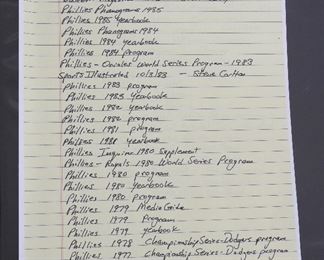 Phillies Phanograms 1985
Phillies 1985 Yearbook
Phillies Phanograms 1984
Phillies 1984 yearbook
Phillies 1984 program
Phillies - Orioles World Series Program - 1983
Sports Illustrated 10/3/83 - Steve Carlton
Phillies 1983 program
Phillies 1983 Yearbook
Phillies 1982 yearbook
Phillies 1982 program
Phillies 1981 program
Phillies 1981 yearbook
Phillies Inquirer 1980 Supplement
Phillies - Royals 1980 World Series Program
Phillies 1980 program
Phillies 1980 yearbook
Phillies 1980 program
Phillies 1979 Media Guide
Phillies 1979 Program
Phillies 1979 yearbook
Phillies 1978 Championship Series - Dodgers program
Phillies 1977 Championship Series - Dodgers program